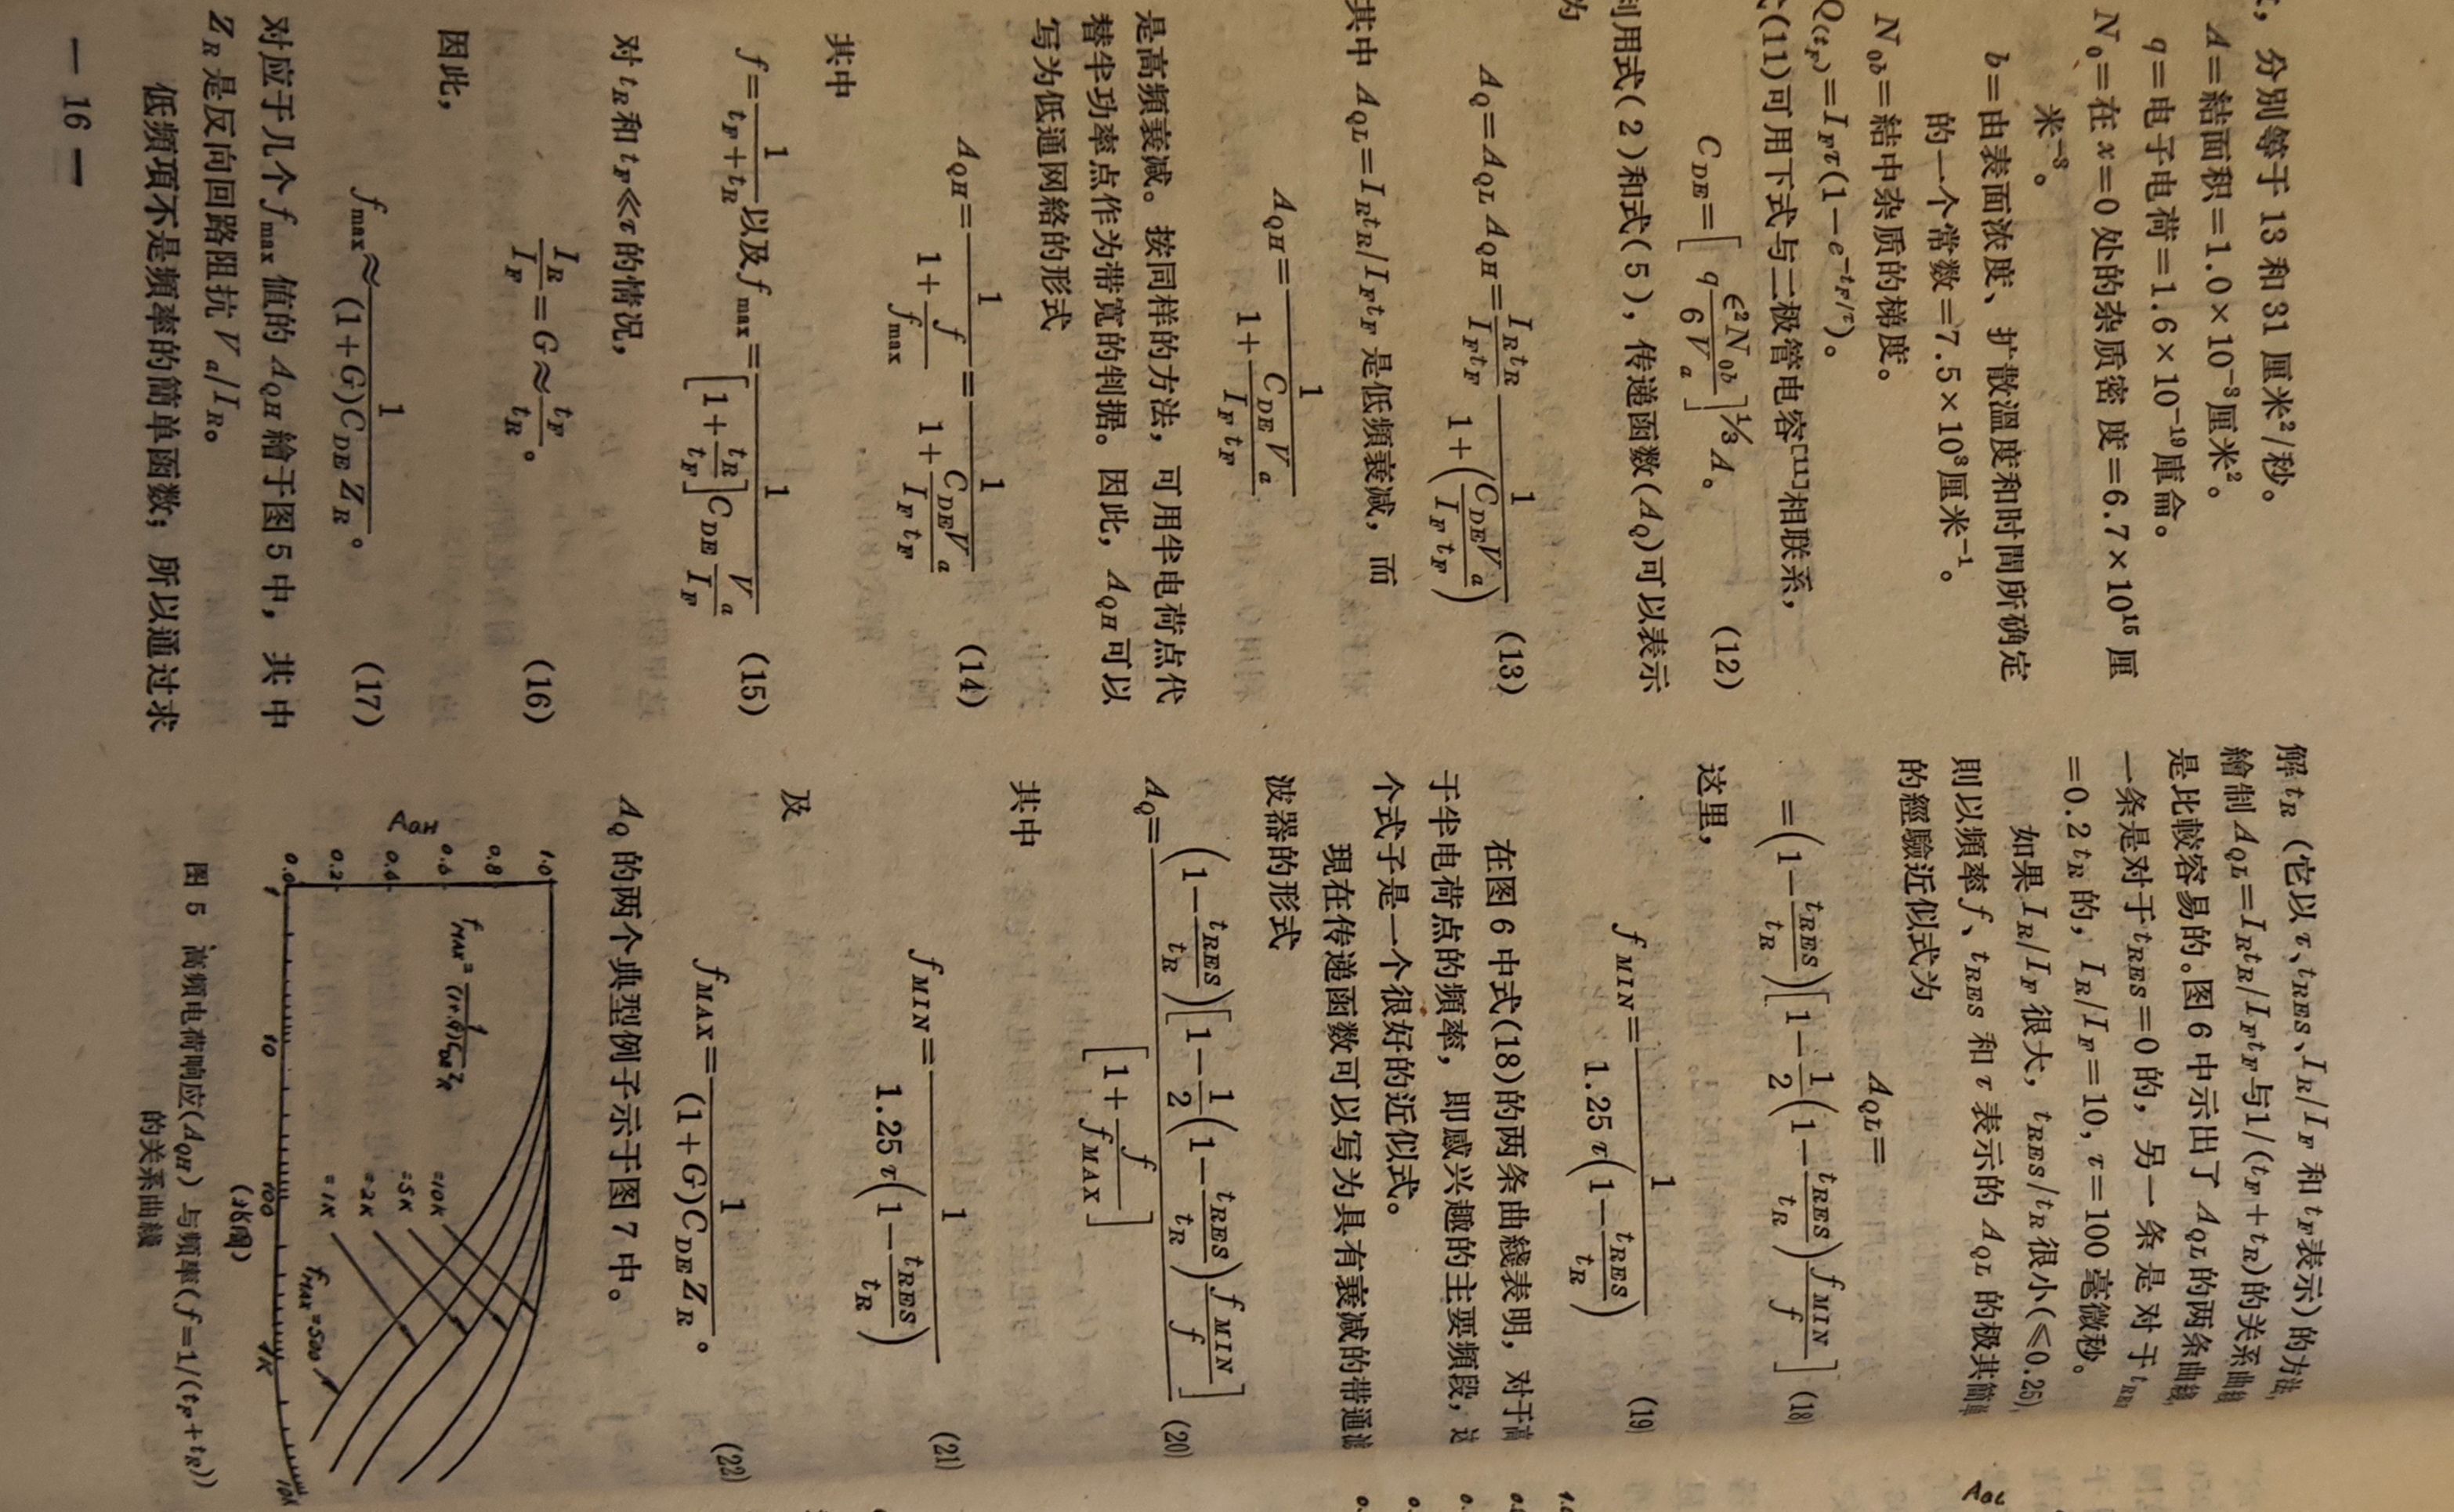 ，分別等于 13 和 31 厘米²/秒。
A＝結面积＝1.0×10⁻³厘米²。
q＝电子电荷＝1.6×10⁻¹⁹庫侖。
N₀＝在 x＝0 处的杂质密度＝6.7×10¹⁵ 厘
米⁻³。
b＝由表面浓度、扩散溫度和时間所确定
的一个常数＝7.5×10³厘米⁻¹。
N₀b＝結中杂质的梯度。
Q(t_F)＝I_Fτ(1－e^{-t_F/τ})。
(11)可用下式与二极管电容[11]相联系，
C_DE＝[q ϵ²N₀b / 6 V_a]^{1/3} A。 (12)
利用式(2)和式(5)，传递函数(A_Q)可以表示
为
A_Q＝A_QL A_QH＝I_R t_R / I_F t_F · 1 / 1＋(C_DE V_a / I_F t_F) (13)
其中 A_QL＝I_R t_R/I_F t_F 是低頻衰减，而
A_QH＝1 / 1＋C_DE V_a / I_F t_F
是高頻衰减。按同样的方法，可用半电荷点代
替半功率点作为带宽的判据。因此，A_QH 可以
写为低通网絡的形式
A_QH＝1 / 1＋f / f_max＝1 / 1＋C_DE V_a / I_F t_F (14)
其中
f＝1 / t_F＋t_R 以及 f_max＝1 / [1＋t_R / t_F]C_DE V_a / I_F (15)
对 t_R 和 t_F≪τ 的情况，
I_R / I_F＝G≈t_F / t_R。 (16)
因此，
f_max≈1 / (1＋G)C_DE Z_R。 (17)
对应于几个 f_max 值的 A_QH 繪于图 5 中，其中
Z_R 是反向回路阻抗 V_a/I_R。
低頻項不是頻率的簡单函数；所以通过求
— 16 —
解 t_R (它以 τ、t_RES、I_R/I_F 和 t_F 表示)的方法，
繪制 A_QL＝I_R t_R/I_F t_F 与 1/(t_F＋t_R)的关系曲線
是比較容易的。图 6 中示出了 A_QL 的两条曲線，
一条是对于 t_RES＝0 的，另一条是对于 t_RES
＝0.2 t_R 的，I_R/I_F＝10，τ＝100 毫微秒。
如果 I_R/I_F 很大，t_RES/t_R 很小(≤0.25)，
則以頻率 f、t_RES 和 τ 表示的 A_QL 的极其簡单
的經驗近似式为
A_QL＝
＝(1－t_RES / t_R)[1－1/2(1－t_RES / t_R)f_MIN / f] (18)
这里，
f_MIN＝1 / 1.25 τ(1－t_RES / t_R) (19)
在图 6 中式(18)的两条曲綫表明，对于高
于半电荷点的頻率，即感兴趣的主要頻段，这
个式子是一个很好的近似式。
現在传递函数可以写为具有衰减的带通濾
波器的形式
A_Q＝(1－t_RES / t_R)[1－1/2(1－t_RES / t_R)f_MIN / f] / [1＋f / f_MAX] (20)
其中
f_MIN＝1 / 1.25 τ(1－t_RES / t_R) (21)
及
f_MAX＝1 / (1＋G)C_DE Z_R。 (22)
A_Q 的两个典型例子示于图 7 中。
A_QH
1.0
0.8
0.6
0.4
0.2
0.0
f_MAX＝1 / (1+G)C_DE Z_R
＝10K
＝5K
＝2K
＝1K
f_MAX＝500
1
10
100
1K
10K
图 5 高频电荷响应(A_QH) 与頻率(f＝1/(t_F＋t_R))
的关系曲綫
A_QL
1.0